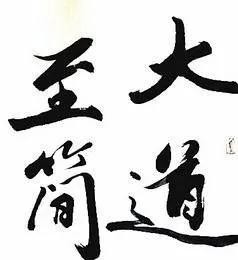 大道
至简